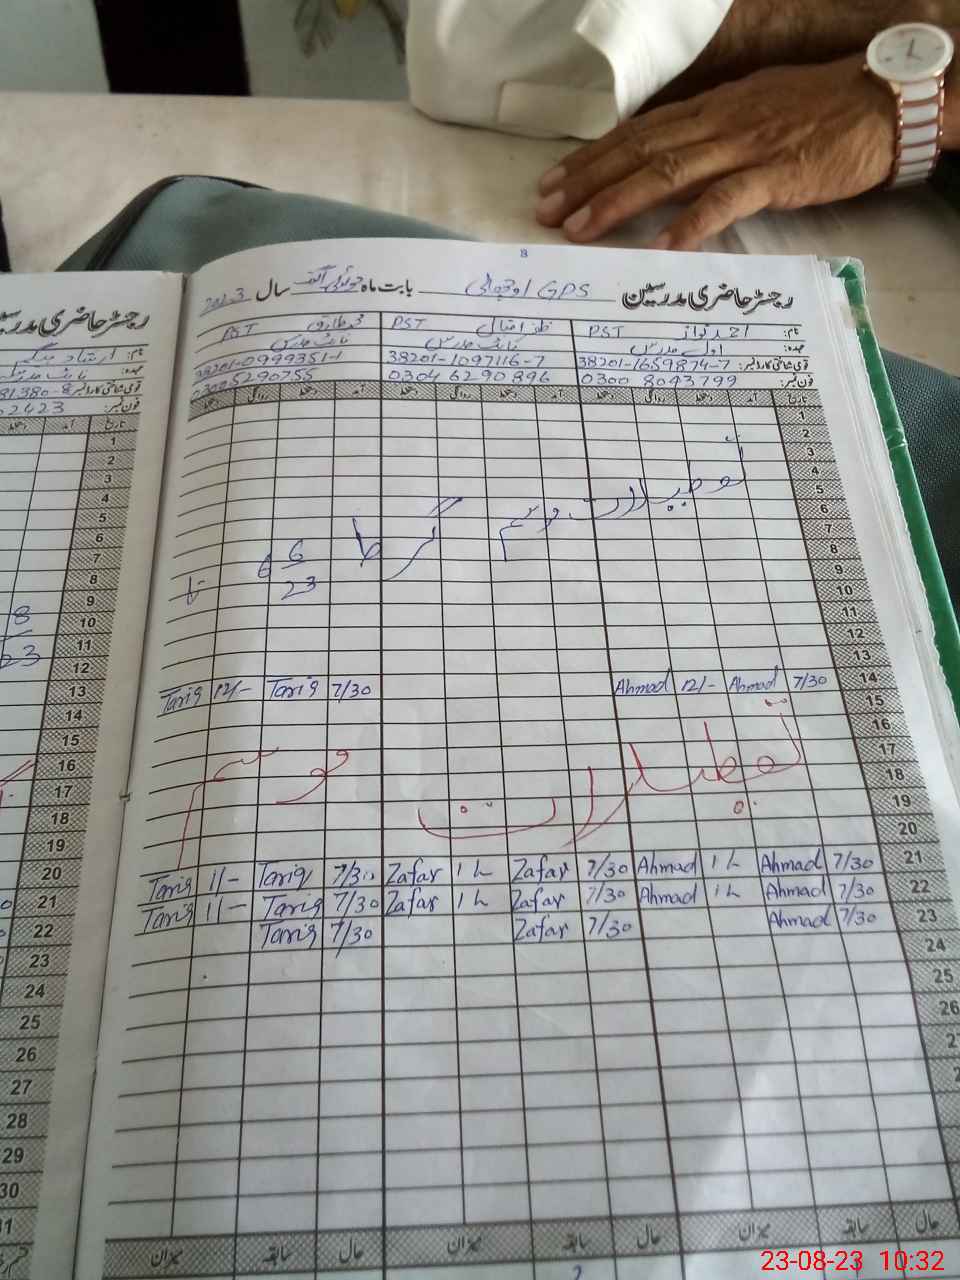 8
رجسٹر حاضری مدرسین GPS اوچھالی بابت ماہ جولائی اگست سال 2023
نام: احمد نواز PST ظفر اقبال PST محمد طارق PST
عہدہ:
قومی شناختی کارڈ نمبر: 38201-1659874-7 38201-1097116-7 38201-0999351-1
فون نمبر: 0300 8093799 0304 6290896 5290755
تاریخ آمد دستخط روانگی دستخط آمد دستخط روانگی دستخط آمد دستخط روانگی دستخط
1
2
3
4
5
تعطیلات موسم گرما
6
7
6/6/23 تا
8
9
10
11
12
13
14 7/30 Ahmad 12/- Ahmad 7/30 Tariq 12/- Tariq
15
16
17
تعطیلات موسم
18
19
20
21 7/30 Ahmad 1 h Ahmad 7/30 Zafar 1 h Zafar 7/30 Tariq 11- Tariq
22 7/30 Ahmad 1 h Ahmad 7/30 Zafar 1 h Zafar 7/30 Tariq 11- Tariq
23 7/30 Ahmad 7/30 Zafar 7/30 Tariq
24
25
26
حال سابقہ میزان حال سابقہ میزان حال سابقہ میزان
رجسٹر حاضری مدرسین
نام:
عہدہ:
قومی شناختی کارڈ نمبر: 81380-8
فون نمبر: 2423
تاریخ آمد دستخط
1
2
3
4
5
6
7
8
9
10
11
12
13
14
15
16
17
18
19
20
21
22
23
24
25
26
27
28
29
30
31
23-08-23 10:32